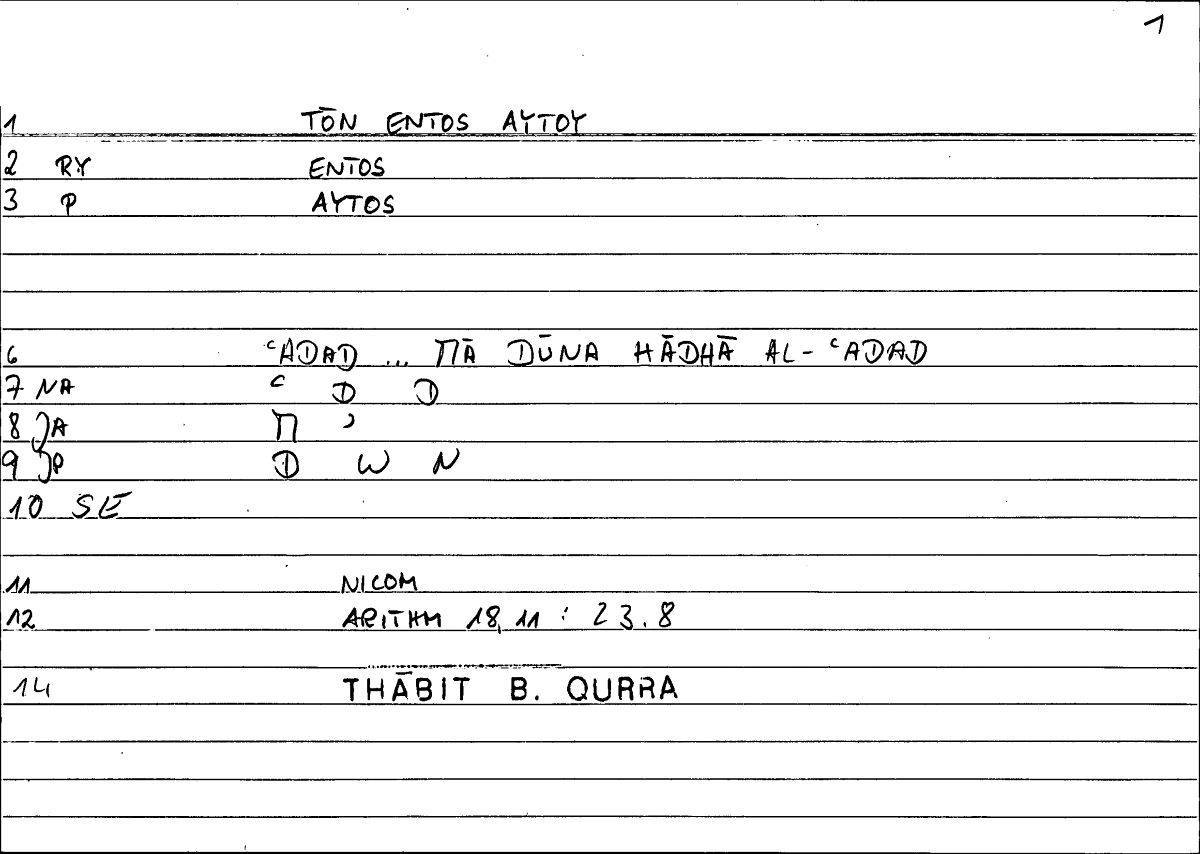 1
1 TŌN ENTOS AYTOY
2 RY ENTOS
3 P AYTOS
6 ʿADAD ... MĀ DŪNA HĀDHĀ AL-ʿADAD
7 NA ʿ D D
8 JA M ʾ
9 JP D W N
10 SE
11 NICOM
12 ARITHM 18,11 : 23.8
14 THĀBIT B. QURRA